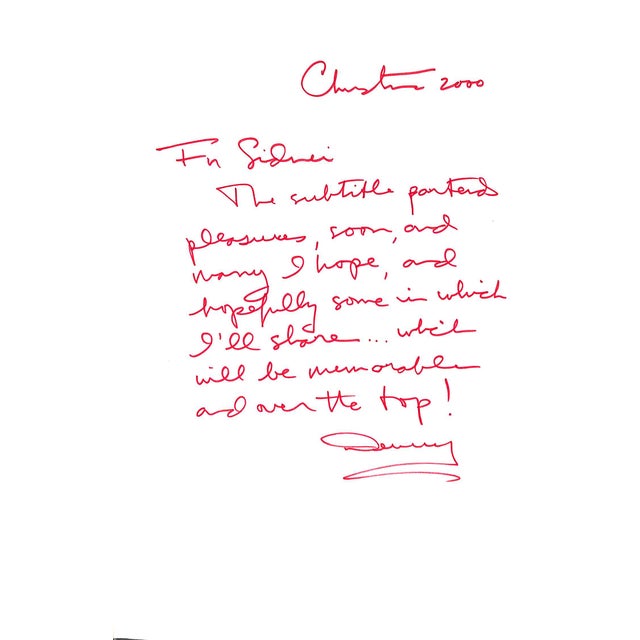 Christmas 2000
For Sidnei
The subtitle portends
pleasures, soon, and
many I hope, and
hopefully some in which
I'll share... which
will be memorable
and over the top!